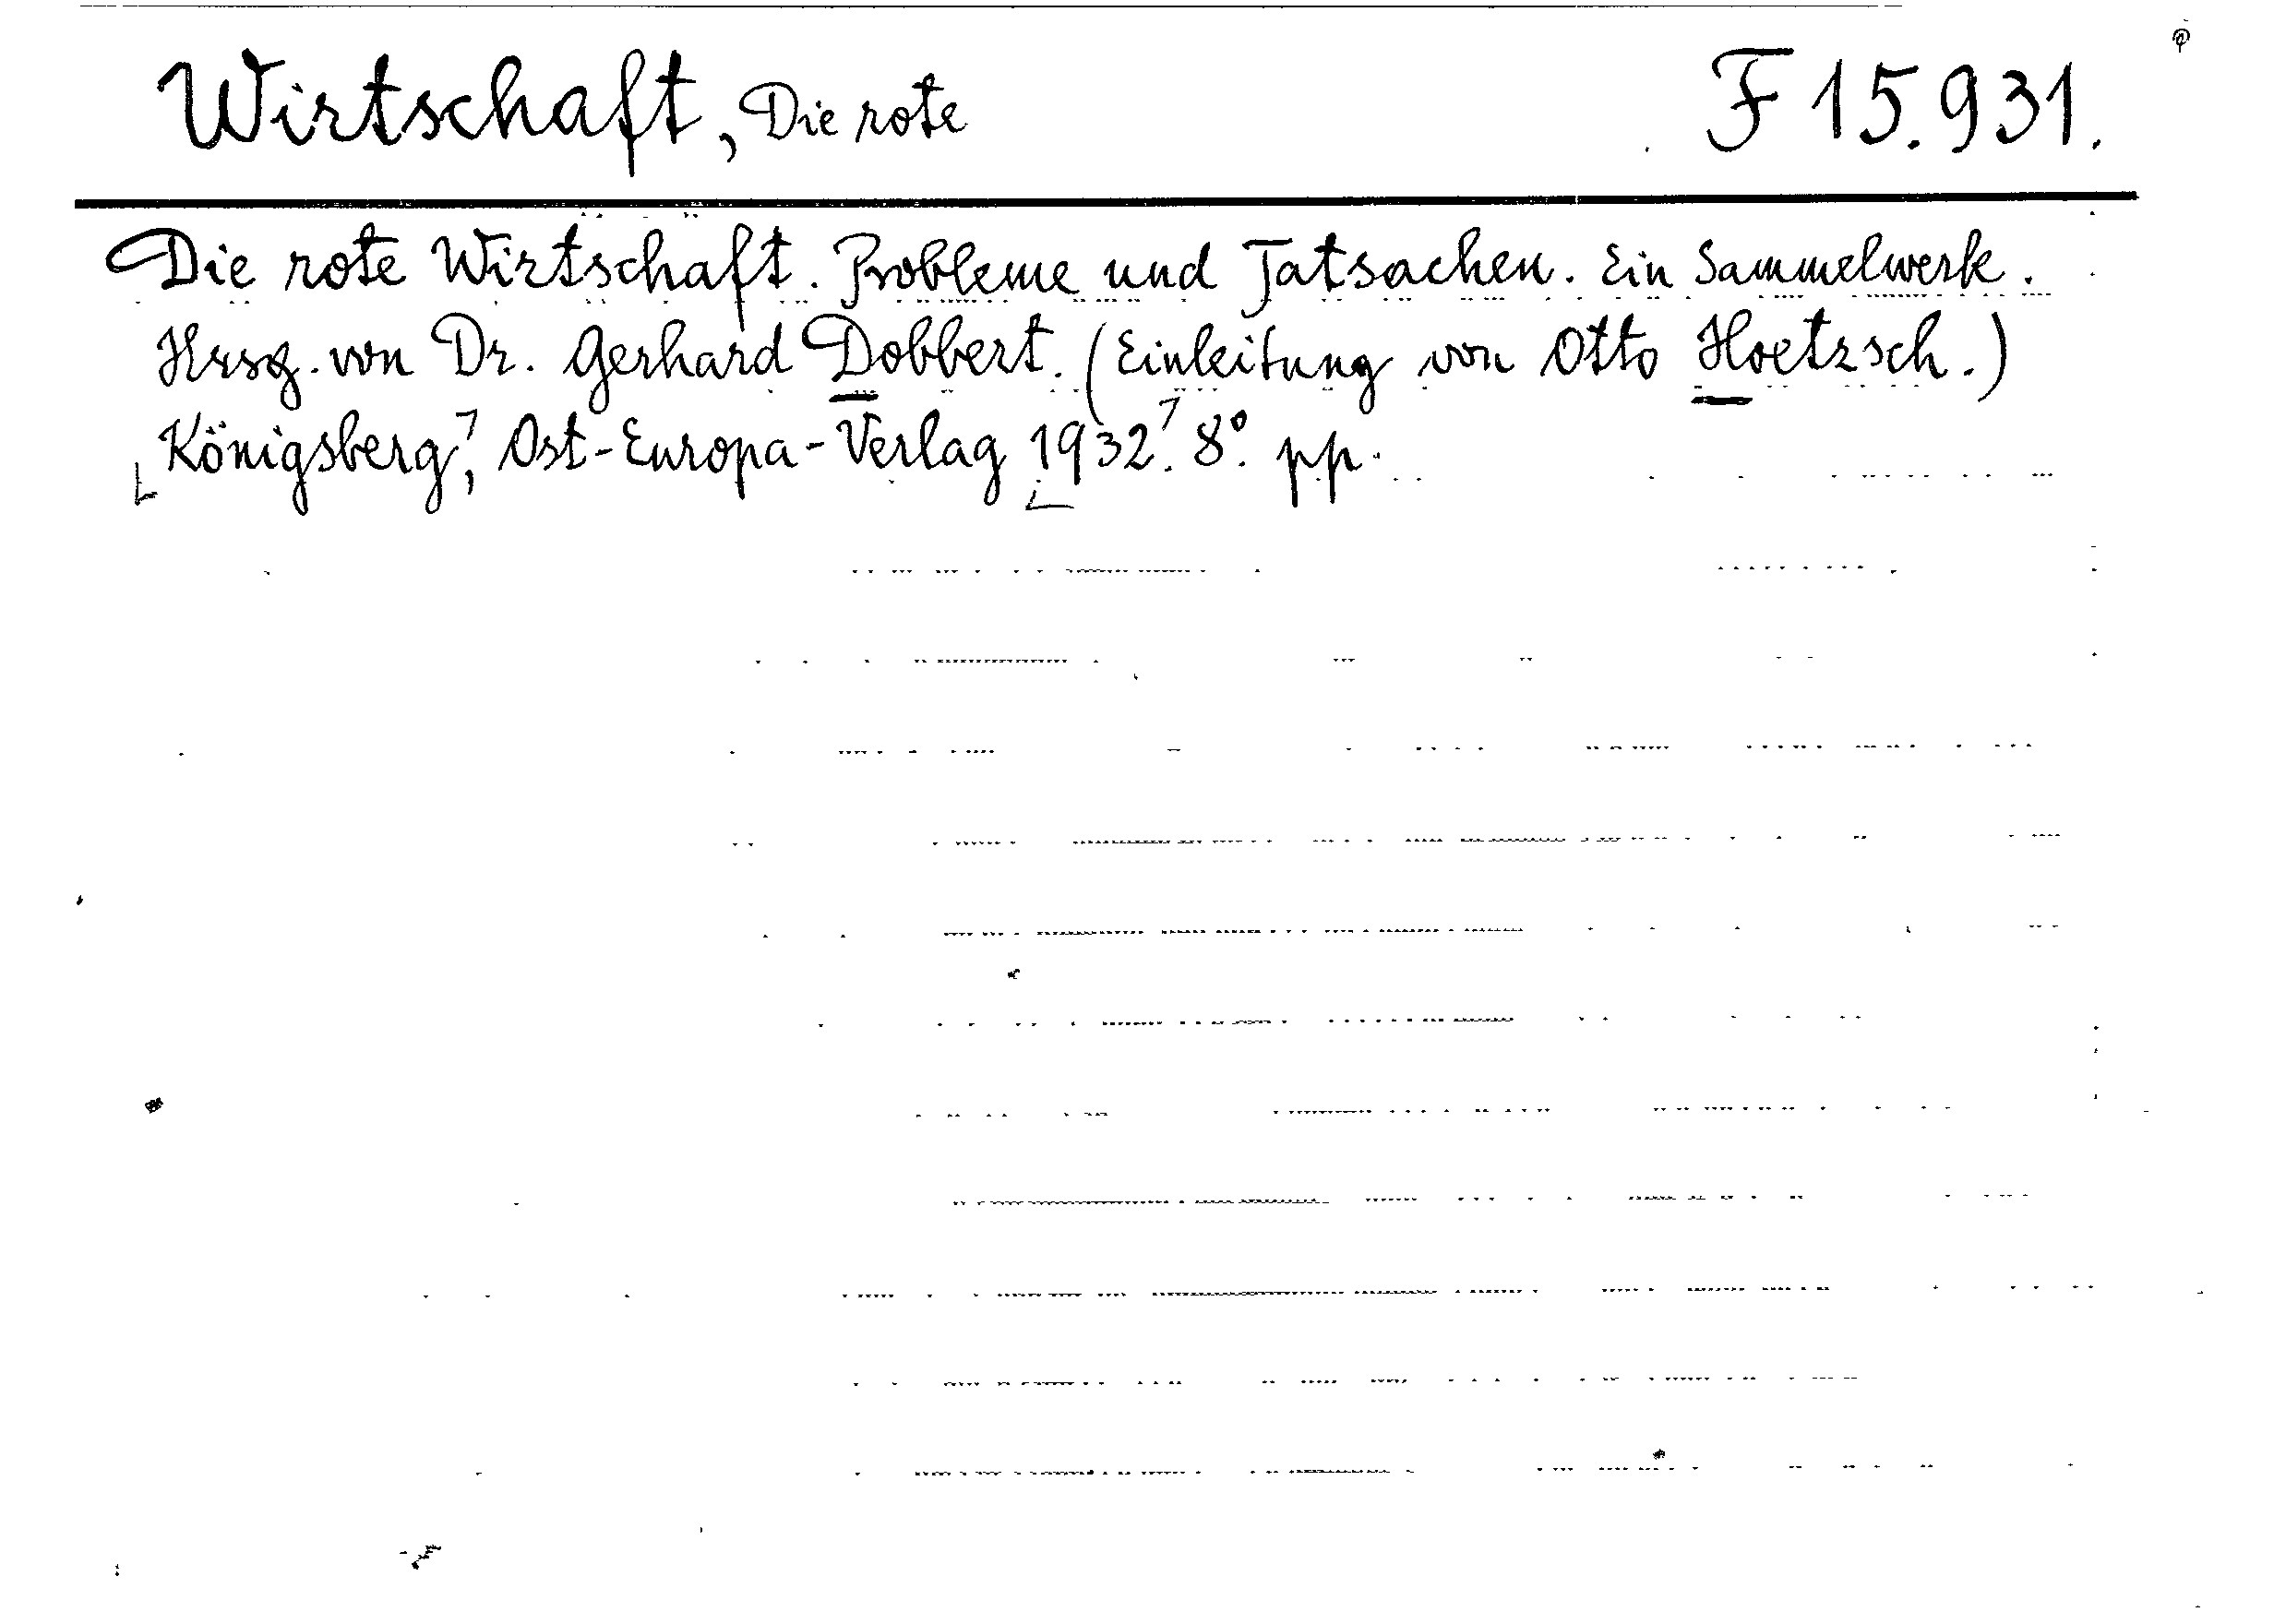 Wirtschaft, Die rote F 15.931.
Die rote Wirtschaft. Probleme und Tatsachen. Ein Sammelwerk.
Hrsg. von Dr. Gerhard Dobbert. (Einleitung von Otto Hoetzsch.)
[Königsberg], Ost-Europa-Verlag [1932]. 8°. pp.